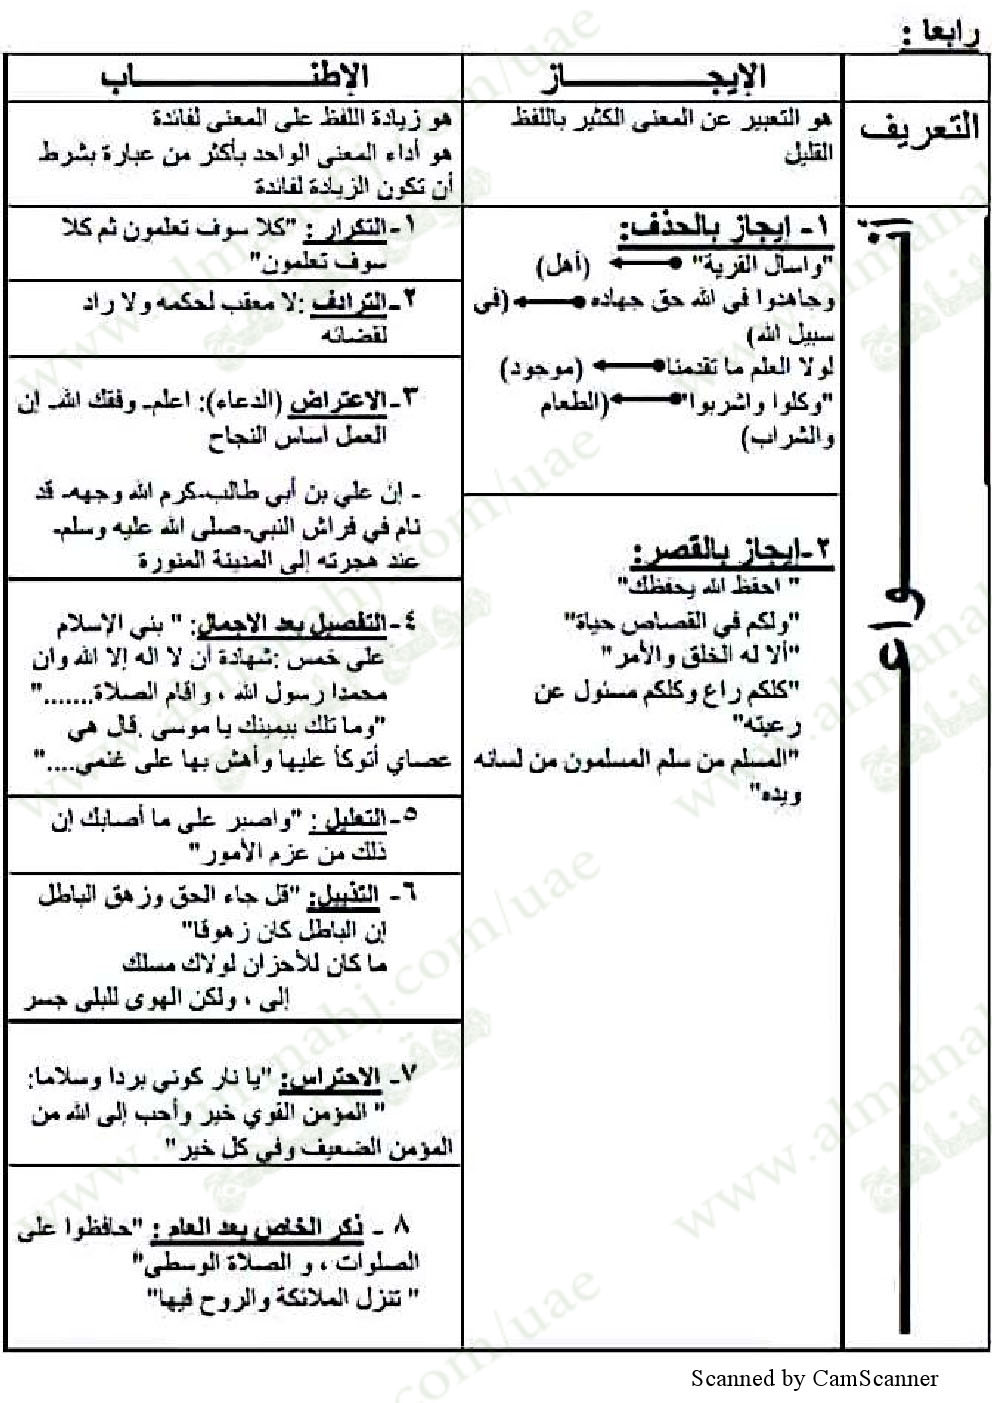 رابعا :
الإيجـــــــاز
الإطنـــــــــاب
التعريف
هو التعبير عن المعنى الكثير باللفظ
القليل
هو زيادة اللفظ على المعنى لفائدة
هو أداء المعنى الواحد بأكثر من عبارة بشرط
أن تكون الزيادة لفائدة
١- إيجاز بالحذف:
"واسأل القرية" (أهل)
وجاهدوا في الله حق جهاده (في
سبيل الله)
لولا العلم ما تقدمنا (موجود)
"وكلوا واشربوا" (الطعام
والشراب)
٢-إيجاز بالقصر:
" احفظ الله يحفظك"
"ولكم في القصاص حياة"
"ألا له الخلق والأمر"
"كلكم راع وكلكم مسئول عن
رعيته"
"المسلم من سلم المسلمون من لسانه
ويده"
١-التكرار : "كلا سوف تعلمون ثم كلا
سوف تعلمون"
٢-الترادف :لا معقب لحكمه ولا راد
لقضائه
٣-الاعتراض (الدعاء): اعلم- وفقك الله- إن
العمل أساس النجاح
- إن علي بن أبي طالب-كرم الله وجهه- قد
نام في فراش النبي-صلى الله عليه وسلم-
عند هجرته إلى المدينة المنورة
٤-التفصيل بعد الاجمال: " بني الإسلام
على خمس :شهادة أن لا اله إلا الله وان
محمدا رسول الله ، واقام الصلاة......."
"وما تلك بيمينك يا موسى .قال هي
عصاي أتوكأ عليها وأهش بها على غنمي...."
٥-التعليل : "واصبر على ما أصابك إن
ذلك من عزم الأمور"
٦- التذييل: "قل جاء الحق وزهق الباطل
إن الباطل كان زهوقا"
ما كان للأحزان لولاك مسلك
إلي ، ولكن الهوى للبلى جسر
٧- الاحتراس: "يا نار كوني بردا وسلاما:
" المؤمن القوي خير وأحب إلى الله من
المؤمن الضعيف وفي كل خير"
٨ - ذكر الخاص بعد العام : "حافظوا على
الصلوات ، و الصلاة الوسطى"
" تنزل الملائكة والروح فيها"
أنواع
www.almanahj.com/uae
Scanned by CamScanner